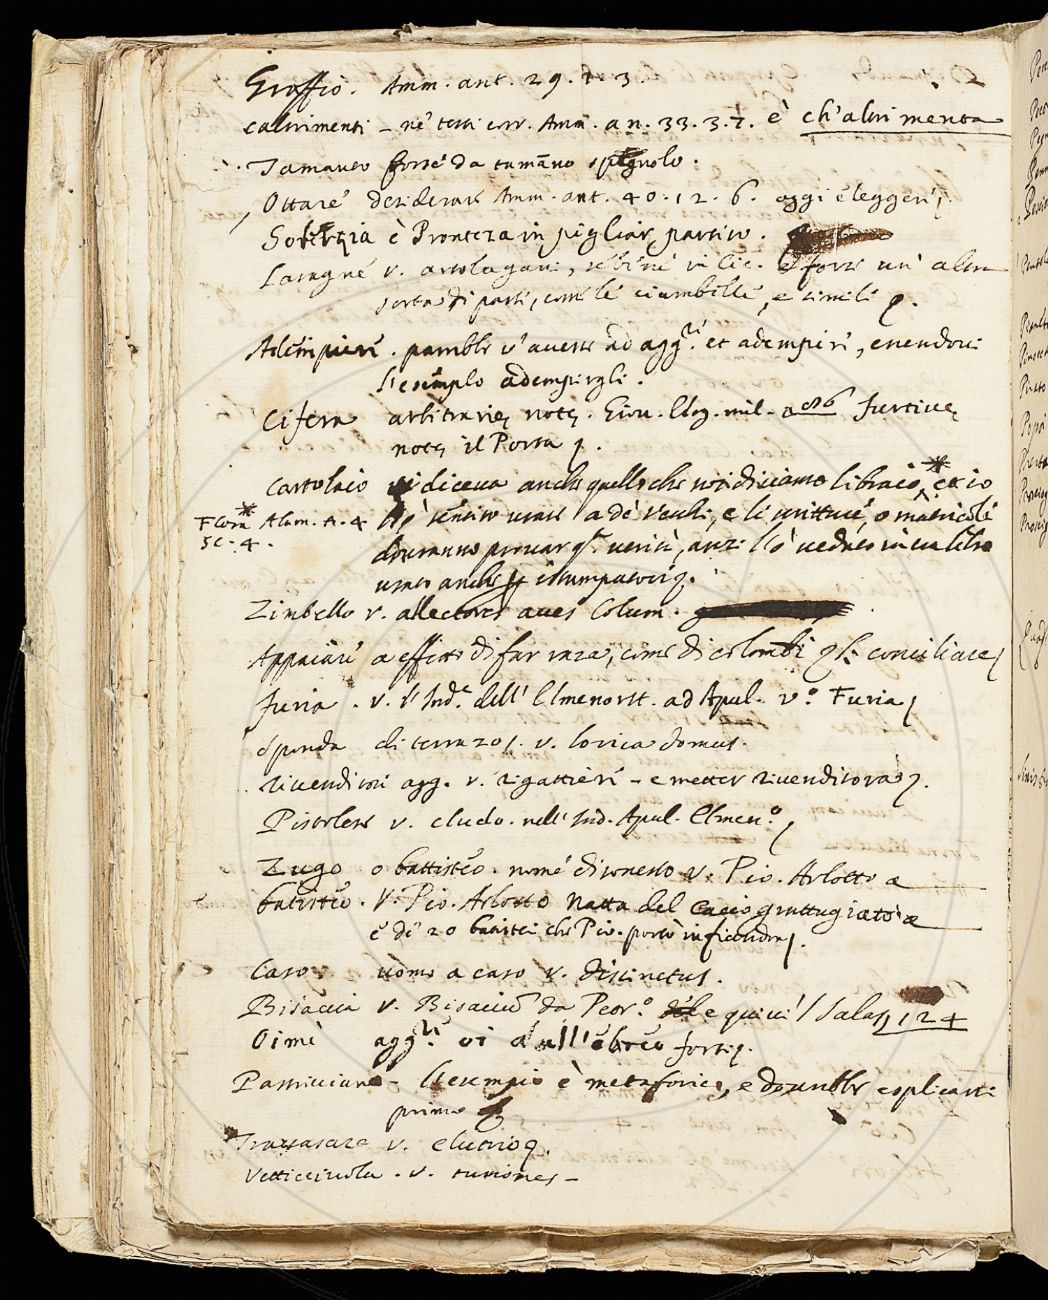 Graffio. Amm. ant. 29. 7. 3.
caltrimenti - ne' testi corr. Amm. an. 33. 3. 7. è ch'altri menta
Tamanto forse da tamãno spagnolo.
Ottare desiderare Amm. ant. 40. 12. 6. oggi è leggeri
Solerzia è Prontezza in pigliar partito.
Lasagne v. artolagani, se bene in lic. e forse un' altra
sorta di pasti, come le ciambelle, e simili
Adempiere. parrebbe v'avesse ad agg.re et adempiere, essendovi
l'esemplo adempirgli.
Cifera arbitrarie note. Giu. mil. 286 furtive
note il Porta
Cartolaio si diceva anche quello che noi diciamo libraio, et io
Flora Alam. A. 4 l'ho sentito usare a de' vecchi, e le scritture, o matricole
sc. 4. dovranno provar q.ta verità, anzi l'ho veduto in un libro
usato anche stampatori
Zimbello v. allectores aves Colum.
Appaiare a effetto di far razza, come di colombi conciliare
Furia. v. l'Ind.e dell' Elmenorst. ad Apul. v.o Furia
Sponda di terrazo. v. lorica domus.
Rivenditori agg. v. rigattiere - e metter rivenditora
Pistolese v. cludo. nell' Ind. Apul. Elmen.o
Zugo o battisteo. nome disonesto v. Pio. Arlotto a
batisteo. V. Pio. Arlotto Natta del Cacio grattugiato a
e de 20 batistei che Pio. portò in
Caso uomo a caso v. discinctus.
Bisaccia v. Bisaccio da Pecor.o e quivi / Salas 124
Oimè agg.re oi dall'ebreo
Pasticciano - l'esempio è metaforico, e dovrebbe esplicarsi
prima
Travasare v. elutrio
Vetticciuola. v. turiones -